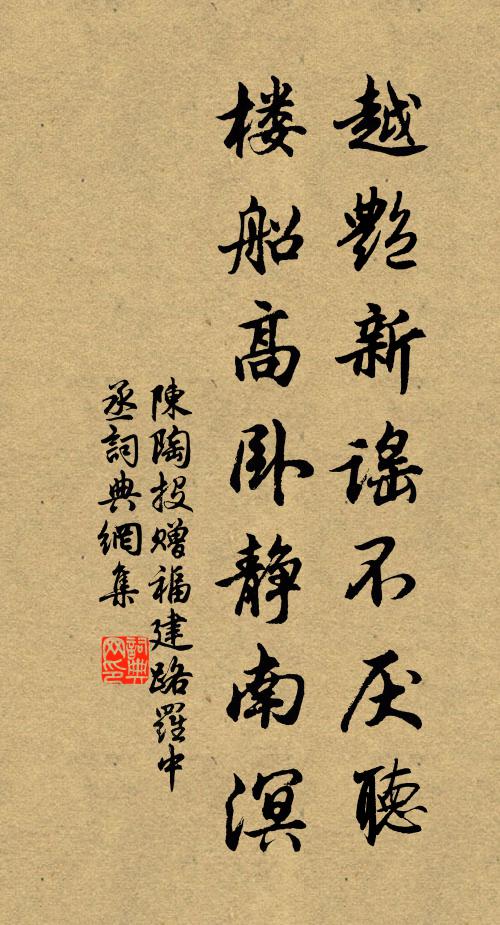 越艷新謠不厌聽
楼船高卧静南溟
陳陶投赠福建路羅中
丞詞典網集
詞典网印